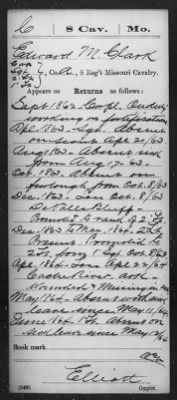 C | 8 Cav. | Mo.
Edward M. Clark
Sgt
, Co. , 8 Reg't Missouri Cavalry.
Appears on Returns as follows:
Sept 1862 Corpl. On duty
working on fortification
Apl. 1863. Sgt. Absent
on scout Apl. 20/63
Aug 1863. Absent
from Aug 17. 63.
Oct. 1863. Absent on
furlough from Oct. 8/63
Dec. 1863. Lieu Oct. 8/63
Bluff
Promoted to rank of 2 Lt
Dec. 1863 to Mar. 1864. 2 Lt
Present Promoted to
2 Lt. from 1 Sgt. Oct. 8/63
Apl. 1864. Lieu. Apl 22/64
Cache River. Ark
Wounded & Missing in
May 1864. Absent without
leave since May 11/64
June 1864. 1 Lt. Absent on
leave since May 12/64
Book mark
(546)
Elliott
Copyist.